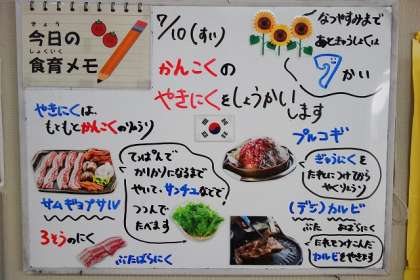 きょう
今日の
しょくいく
食育メモ
7/10(すい)
なつやすみまで
あときゅうしょくは
7かい
かんこくの
やきにくをしょうかいします
やきにくは、
もともとかんこくのりょうり
サムギョプサル
3そうのにく
ぶたばらにく
てっぱんで
カリカリになるまで
やいて、サンチュなどで
つつんで
たべます
プルコギ
ぎゅうにくを
たれにつけてから
やくりょうり
(デジ)カルビ
ぶた　あばらにく
たれにつけこんだ
カルビをやきます